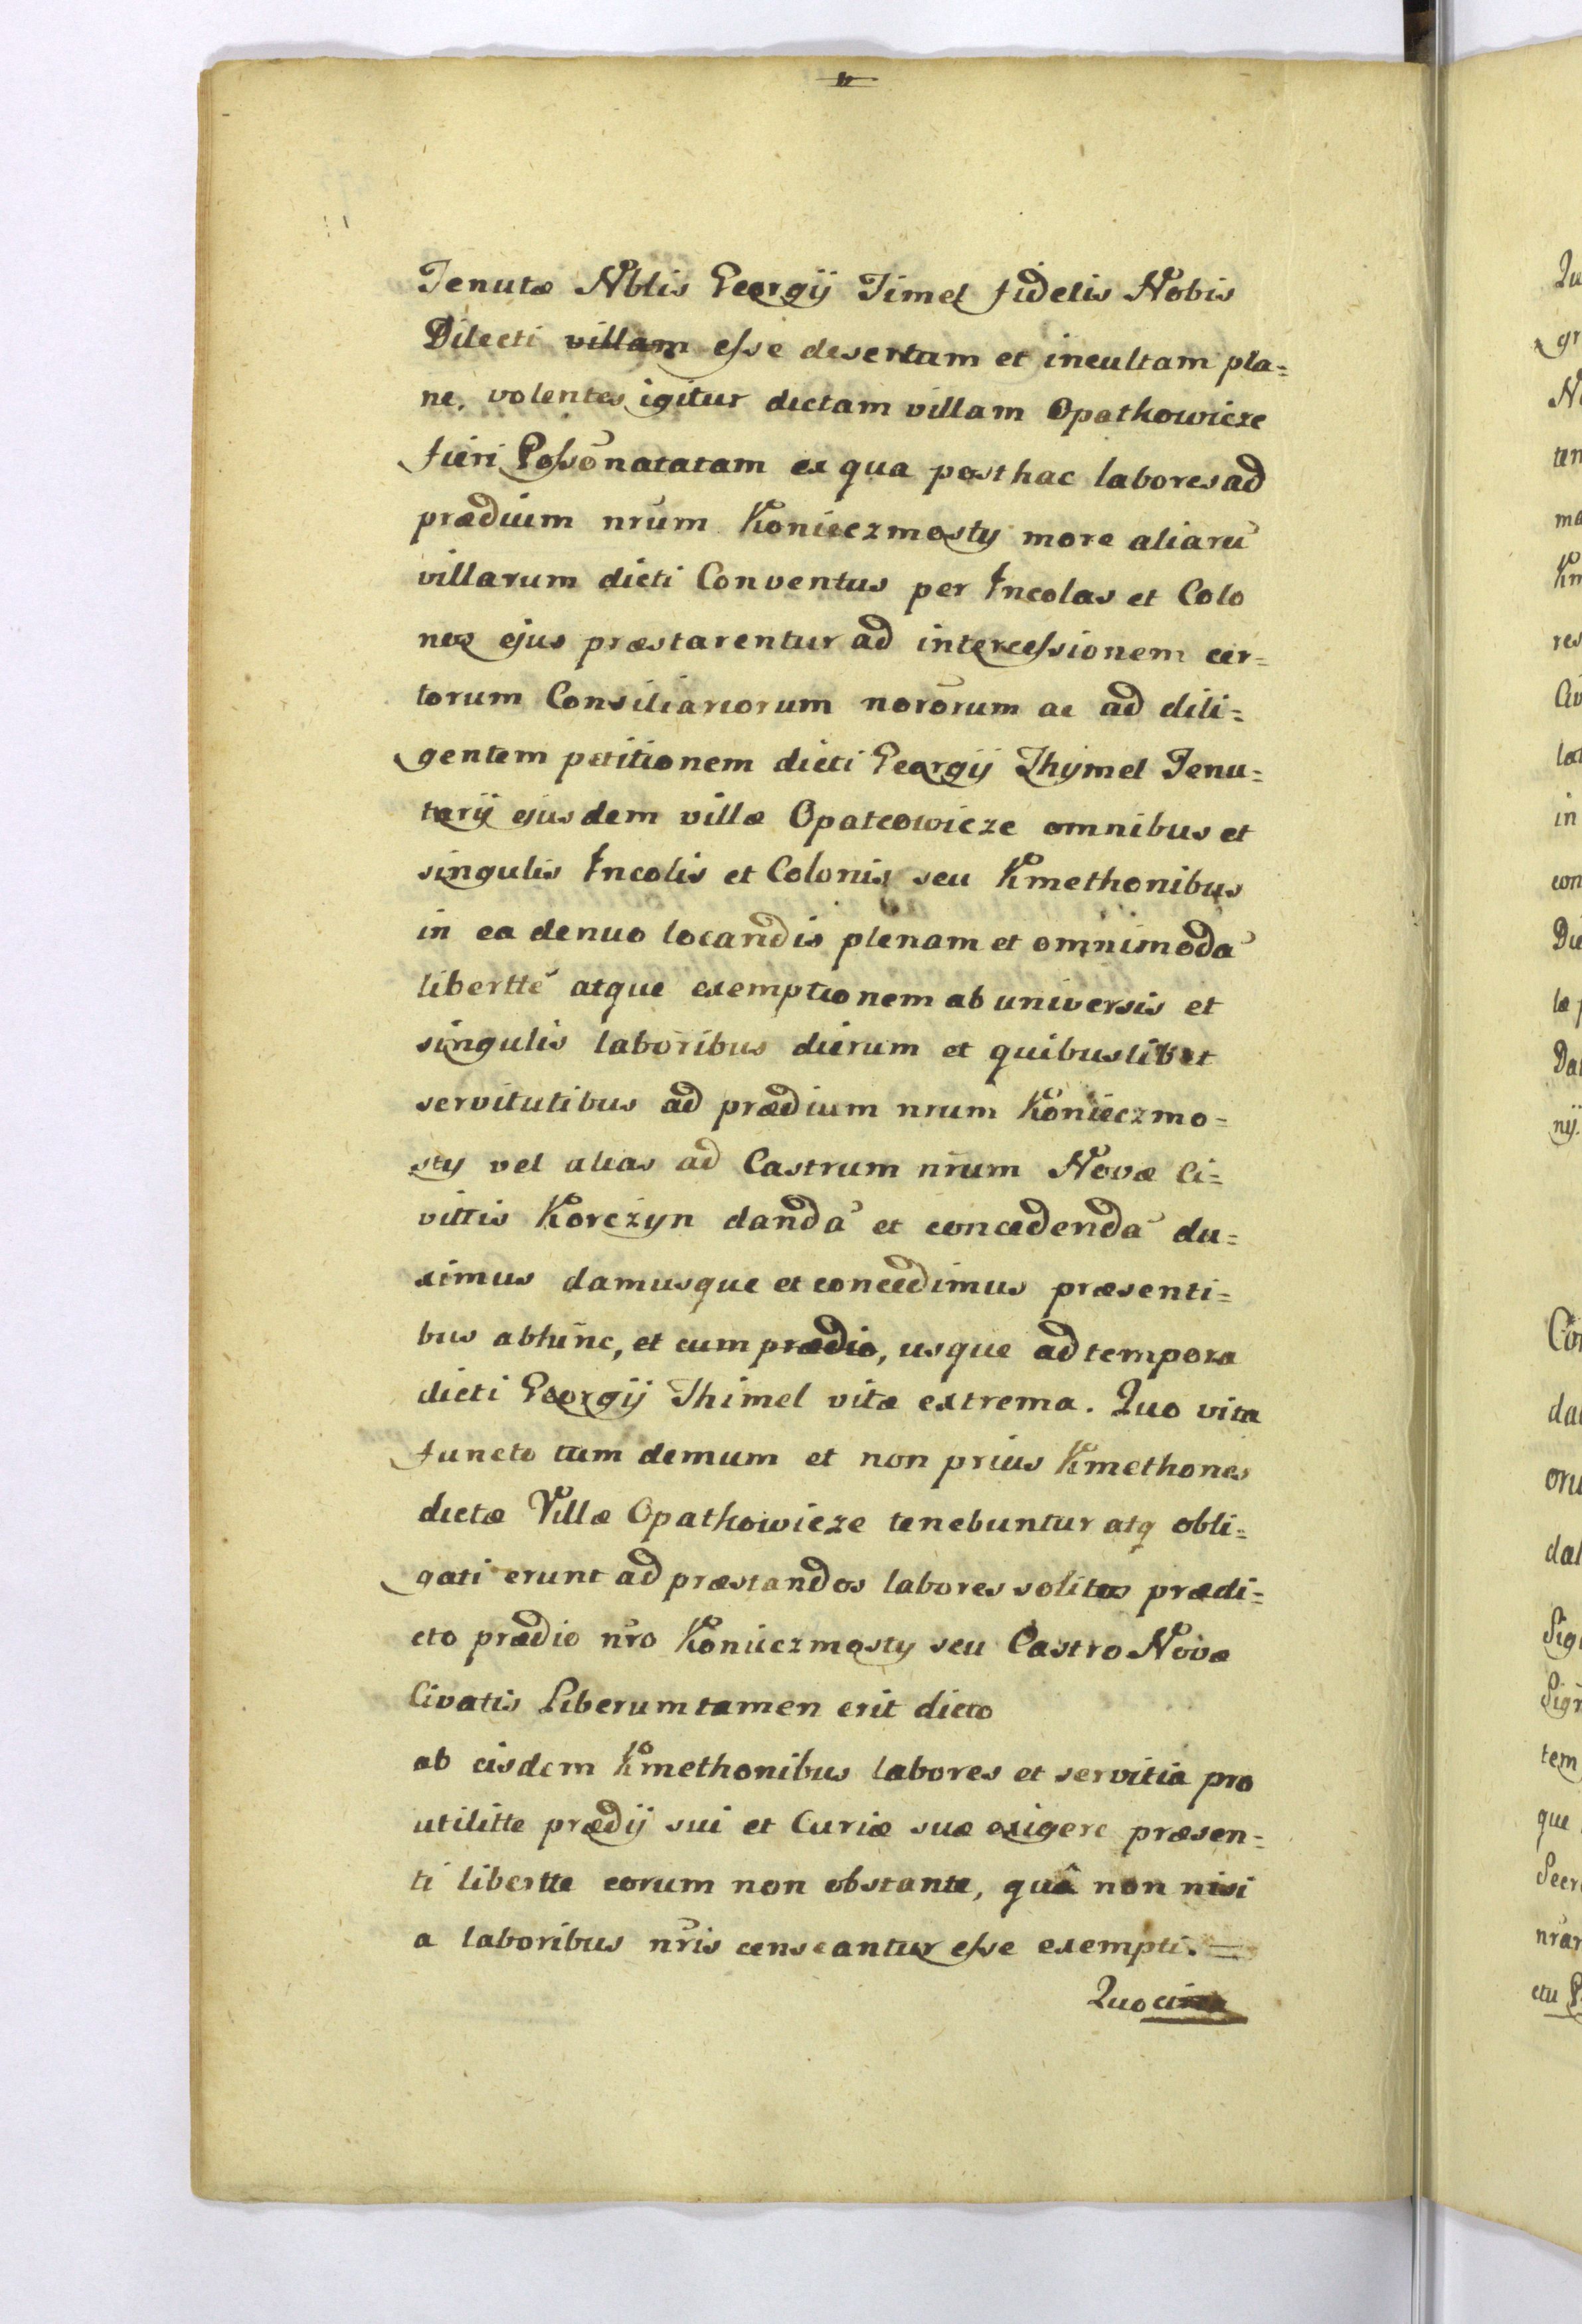 Tenutæ Nblis Georgij Timel fidelis Nobis
Dilecti villam esse desertam et incultam pla=
ne, volentes igitur dictam villam Opathowicze
fieri Possõnatatam ex qua posthac labores ad
prædium nrũm Konieczmosty more aliarũ
villarum dicti Conventus per Incolas et Colo
nos ejus præstarentur ad intercessionem cer=
torum Consiliariorum norõrum ac ad dili=
gentem petitionem dicti Georgij Thymel Tenu=
tarij ejusdem villæ Opatcowicze omnibus et
singulis Incolis et Colonis seu Kmethonibus
in ea denuo locandis plenam et omnimodã
liberttẽ atque exemptionem ab universis et
singulis laboribus dierum et quibuslibet
servitutibus ad prædium nrum Konieczmo=
sty vel alias ad Castrum nrũm Novæ Ci=
vittis Korczyn dandã et concedendã du=
ximus damusque et concedimus præsenti=
bus abhinc, et cum prædio, usque ad tempora
dicti Georgij Thimel vitæ extrema. Quo vita
functo tum demum et non prius Kmethones
dictæ Villæ Opathowicze tenebuntur atq obli=
gati erunt ad præstandos labores solitos prædi=
cto prædio nrõ Konieczmosty seu Castro Novæ
Civatis Liberum tamen erit dicto
ab eisdem Kmethonibus labores et servitia pro
utilitte prædij sui et Curiæ suæ exigere præsen=
ti libertte eorum non obstante, quâ non nisi
a laboribus nrĩs censeantur esse exempti. =
Quocirca